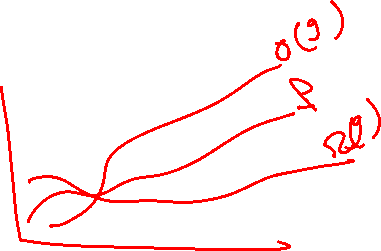 O(g)
f
Ω(g)